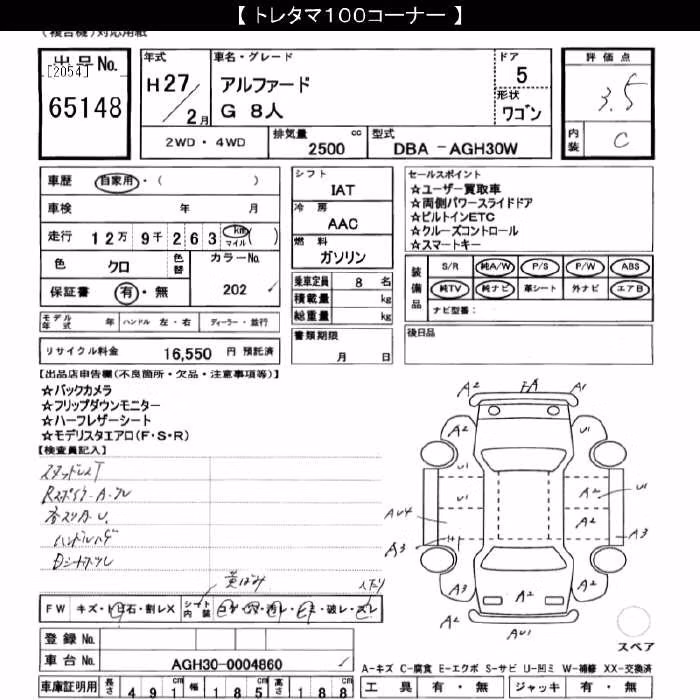 【 トレタマ100コーナー 】
(複合機)対応用紙
出品No.
[2054]
65148
年式
H27/2月
車名・グレード
アルファード
G 8人
ドア
5
形状
ワゴン
評価点
3.5
内装
C
2WD ・ 4WD
排気量 cc
2500
型式
DBA -AGH30W
車歴 自家用・( )
車検 年 月
走行 12万 9千 263 km マイル ( )
色 クロ 色替
カラーNo.
202
保証書 有・無
モデル年式 年 ハンドル 左・右 ディーラー・並行
リサイクル料金 16,550 円 預託済
シフト
IAT
冷房
AAC
燃料
ガソリン
乗車定員 8 名
積載量 kg
総重量 kg
書類期限
月 日
セールスポイント
☆ユーザー買取車
☆両側パワースライドドア
☆ビルトインETC
☆クルーズコントロール
☆スマートキー
装備品
S/R 純A/W P/S P/W ABS
純TV 純ナビ 革シート 外ナビ エアB
ナビ型番:
後日品
【出品店申告欄(不良箇所・欠品・注意事項等)】
☆バックカメラ
☆フリップダウンモニター
☆ハーフレザーシート
☆モデリスタエアロ(F・S・R)
【検査員記入】
スタッドレスT
ハンドルハゲ
黄ばみ
FW キズ・トビ石・割レX
シート内装 コゲ・穴・汚レ・シミ・破レ・スレ
登録No.
車台No. AGH30-0004860
車庫証明用 長さ 491 幅 185 高さ 188
A2 FA A1
A2 U1
U1 U1
A2 U1
AU4 A2
A3 A3
A3 A2
A2 AU1
スペア
A-キズ C-腐食 E-エクボ S-サビ U-凹ミ W-補修 XX-交換済
工具 有・無 ジャッキ 有・無